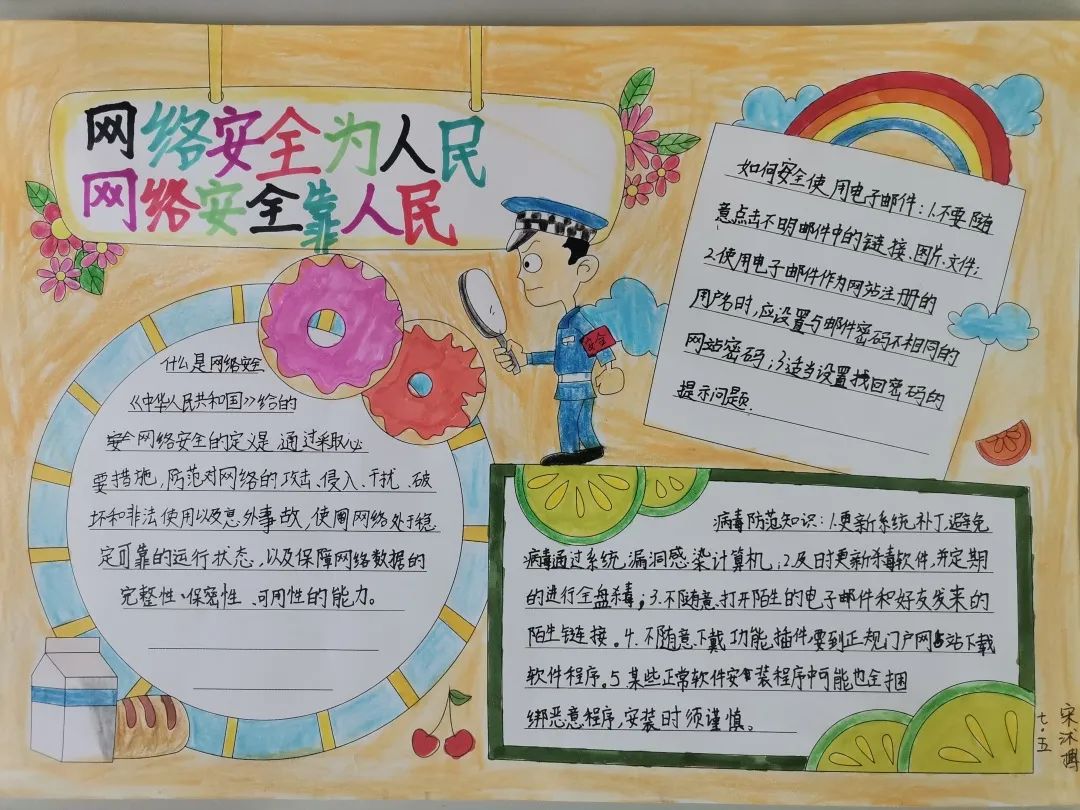 网络安全为人民
网络安全靠人民
什么是网络安全
《中华人民共和国》给的
安全网络安全的定义是 通过采取必
要措施，防范对网络的攻击、侵入、干扰、破
坏和非法使用以及意外事故，使网络处于稳
定可靠的运行状态，以及保障网络数据的
完整性、保密性、可用性的能力。
安全
如何安全使用电子邮件：1.不要随
意点击不明邮件中的链接、图片、文件；
2.使用电子邮件作为网站注册的
用户名时，应设置与邮件密码不相同的
网站密码；3.适当设置找回密码的
提示问题.
病毒防范知识：1.更新系统补丁，避免
病毒通过系统漏洞感染计算机；2.及时更新杀毒软件，并定期
的进行全盘杀毒；3.不随意打开陌生的电子邮件和好友发来的
陌生链接。4.不随意下载功能插件，要到正规门户网站下载
软件程序。5.某些正常软件安装程序中可能也会捆
绑恶意程序，安装时须谨慎。
七.五
宋沐